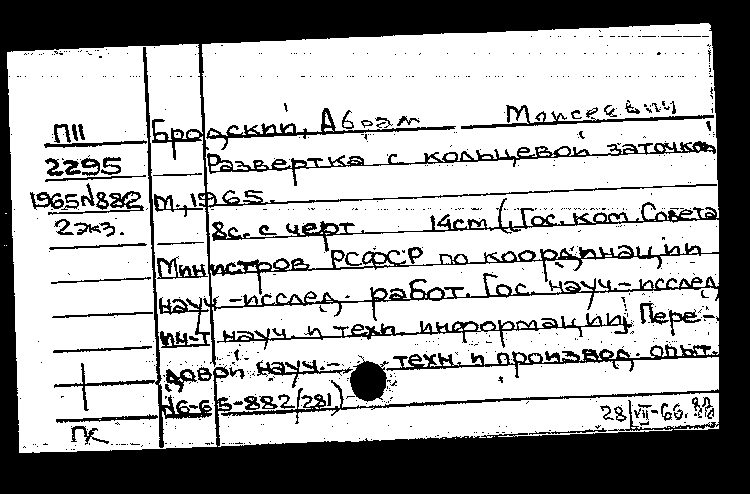 П11 Бродский, Абрам Моисеевич
2295 Развертка с кольцевой заточкой
1965 №882 М., 1965.
2 экз. 8с. с черт. 14см. (Гос. ком. Совета
Министров РСФСР по координации
науч.-исслед. работ. Гос. науч.-исслед.
ин-т науч. и техн. информации). Пере-
довой науч.- техн. и производ. опыт.
№6-65-882/281)
28/VII-66.
ПК